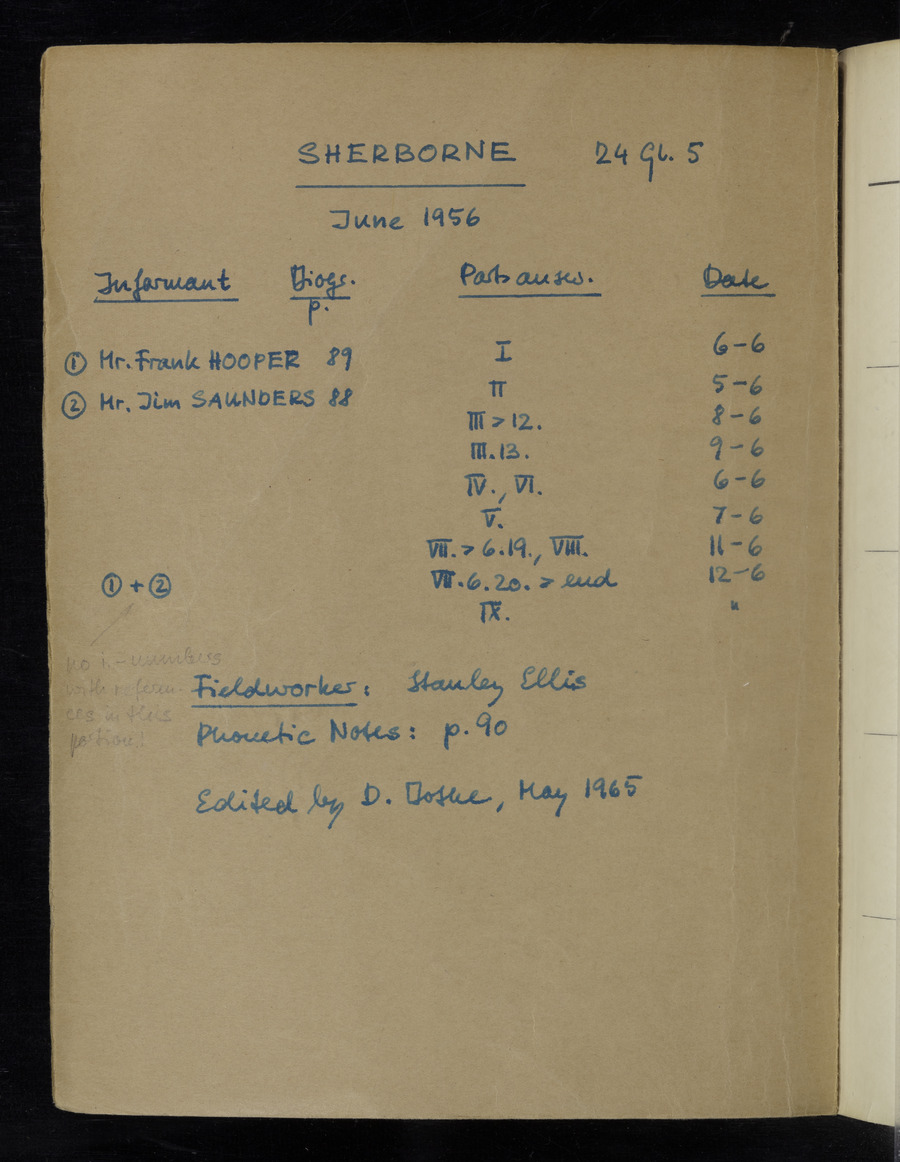 SHERBORNE 24 Gl. 5
June 1956
Informant Biogr. Parts answ. Date
p.
① Mr. Frank HOOPER 89 I 6-6
② Mr. Jim SAUNDERS 88 II 5-6
III > 12. 8-6
III.13. 9-6
IV., VI. 6-6
V. 7-6
VII. > 6.19., VIII. 11-6
① + ② VII.6.20. > end 12-6
IX. "
no i.-numbers
with referen-
ces in this
portion!
Fieldworker: Stanley Ellis
Phonetic Notes: p.90
Edited by D. Bothe, May 1965